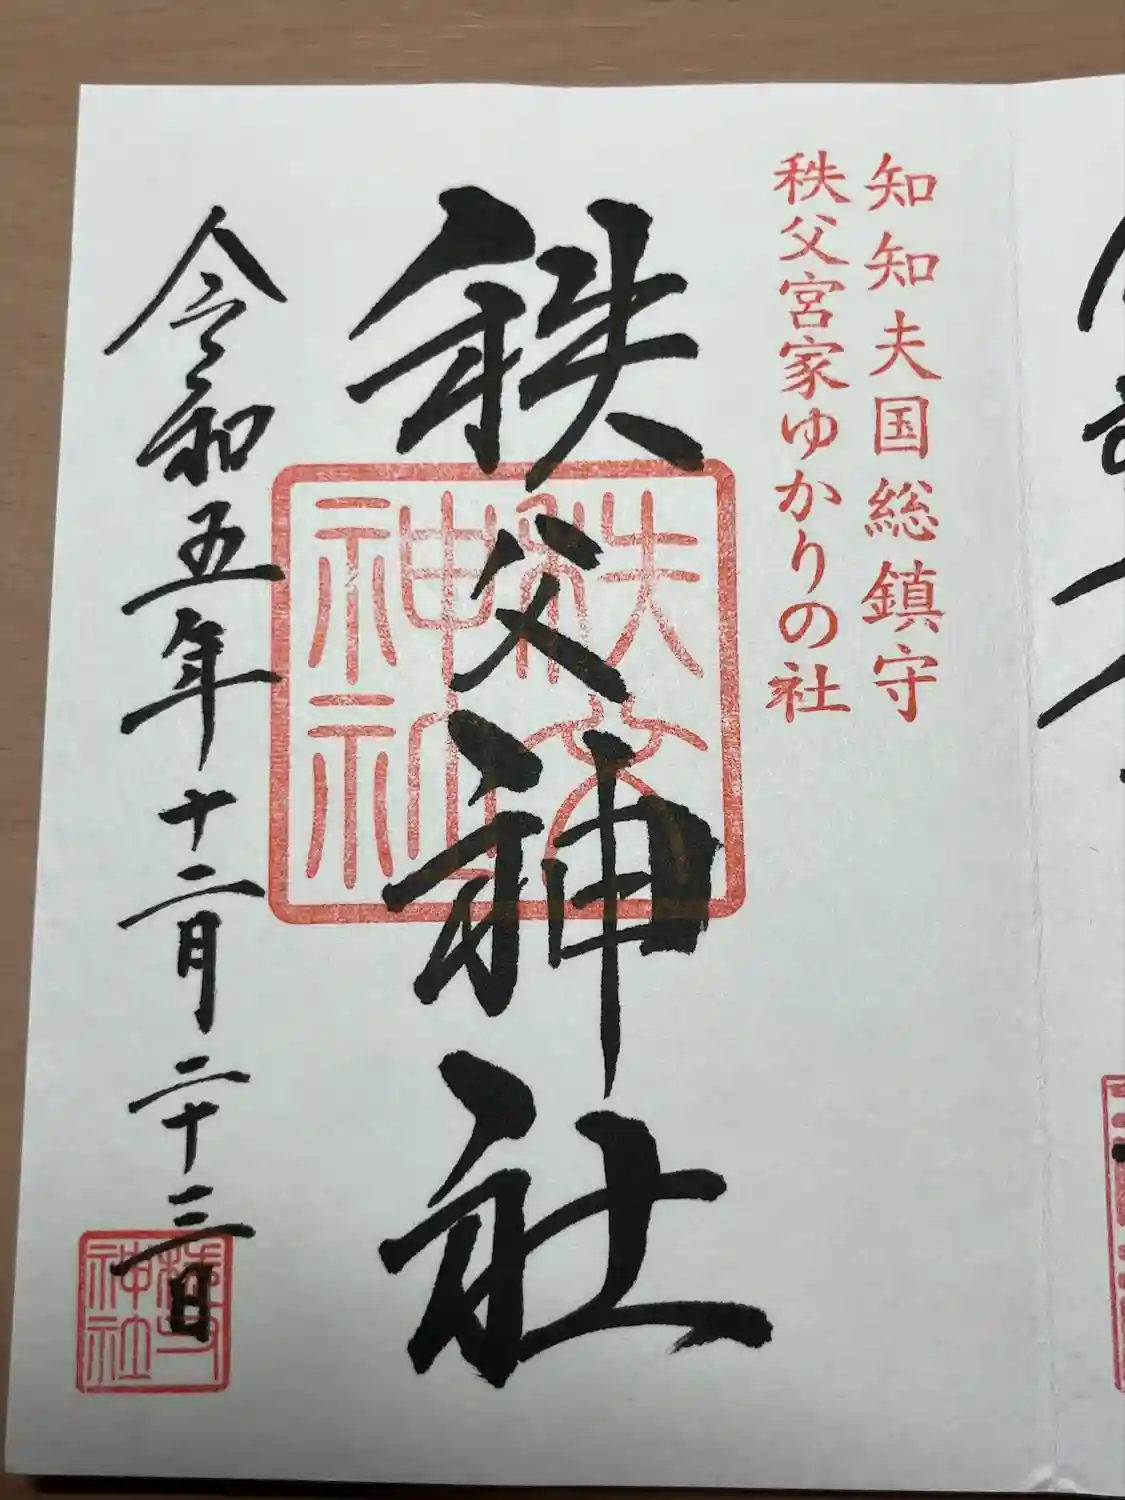 知知夫国総鎮守
秩父宮家ゆかりの社
秩父神社
秩父神社
令和五年十二月二十三日
神社